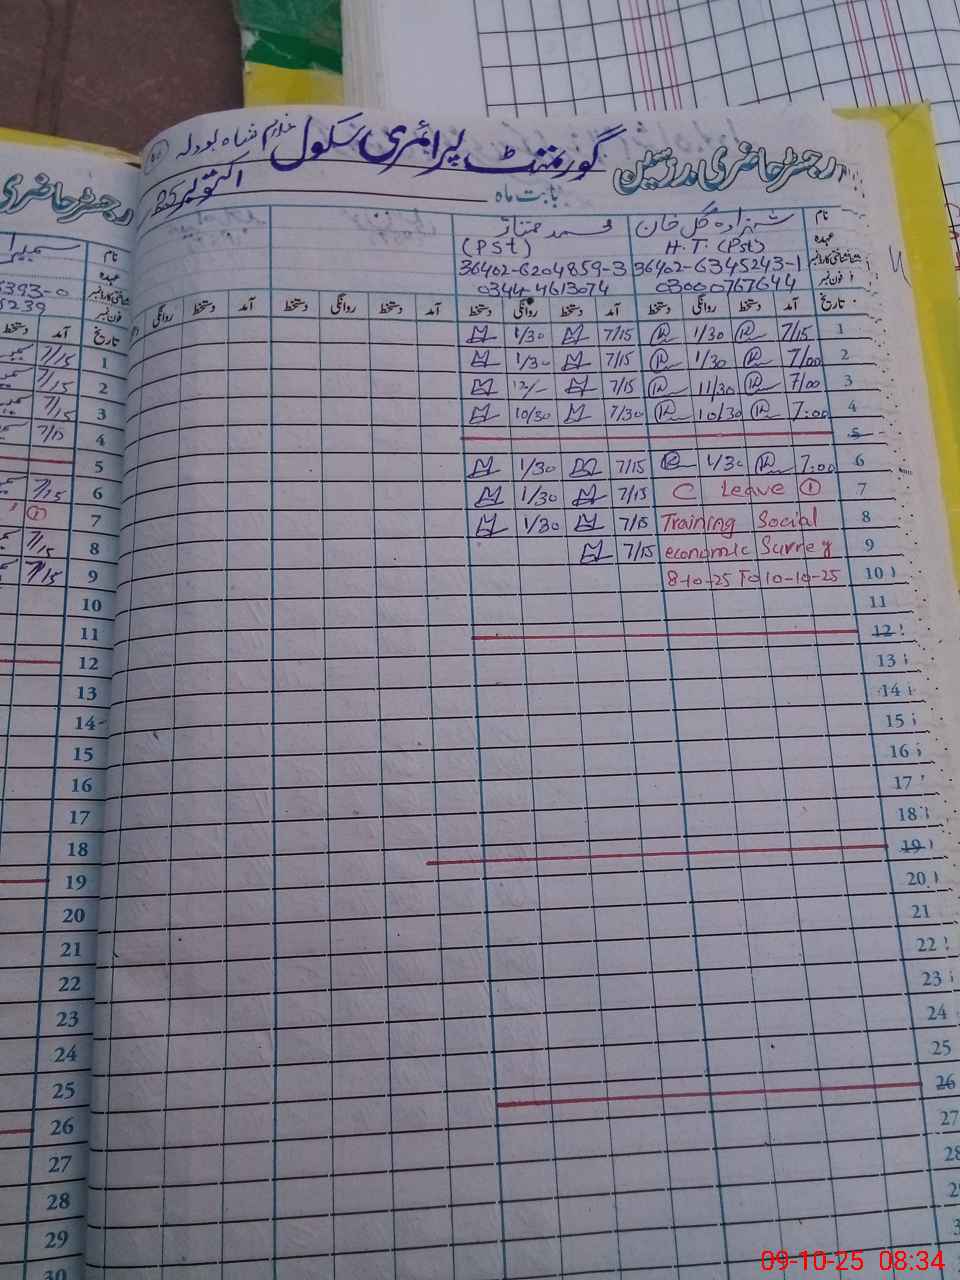 رجسٹر حاضری مدرسین گورنمنٹ پرائمری سکول خادم شاہ بودلہ
بابت ماہ اکتوبر 25
نام شہزادہ گل خان محمد ممتاز
عہدہ H.T. (Pst) (Pst)
شناختی کارڈ نمبر 36402-6345243-1 36402-6204859-3
فون نمبر 03000767644 0344-4613074
تاریخ آمد دستخط روانگی دستخط آمد دستخط روانگی دستخط آمد دستخط روانگی دستخط آمد دستخط روانگی
1 7/15 1/30 7/15 1/30
2 7/00 1/30 7/15 1/30
3 7/00 11/30 7/15 12/-
4 7:00 10/30 7/30 10/30
5
6 7:00 1/30 7/15 1/30
7 C Leave 1 7/15 1/30
8 Training Social 7/15 1/30
9 economic Survey 7/15
10 8-10-25 To 10-10-25
11
12
13
14
15
16
17
18
19
20
21
22
23
24
25
26
27
28
رجسٹر حاضری
نام
عہدہ
شناختی کارڈ نمبر 5393-0
فون نمبر 5239
تاریخ آمد دستخط
1 7/15
2 7/15
3 7/15
4 7/15
5
6 7/15
7 1
8 7/15
9 7/15
10
11
12
13
14
15
16
17
18
19
20
21
22
23
24
25
26
27
28
29
30
09-10-25 08:34